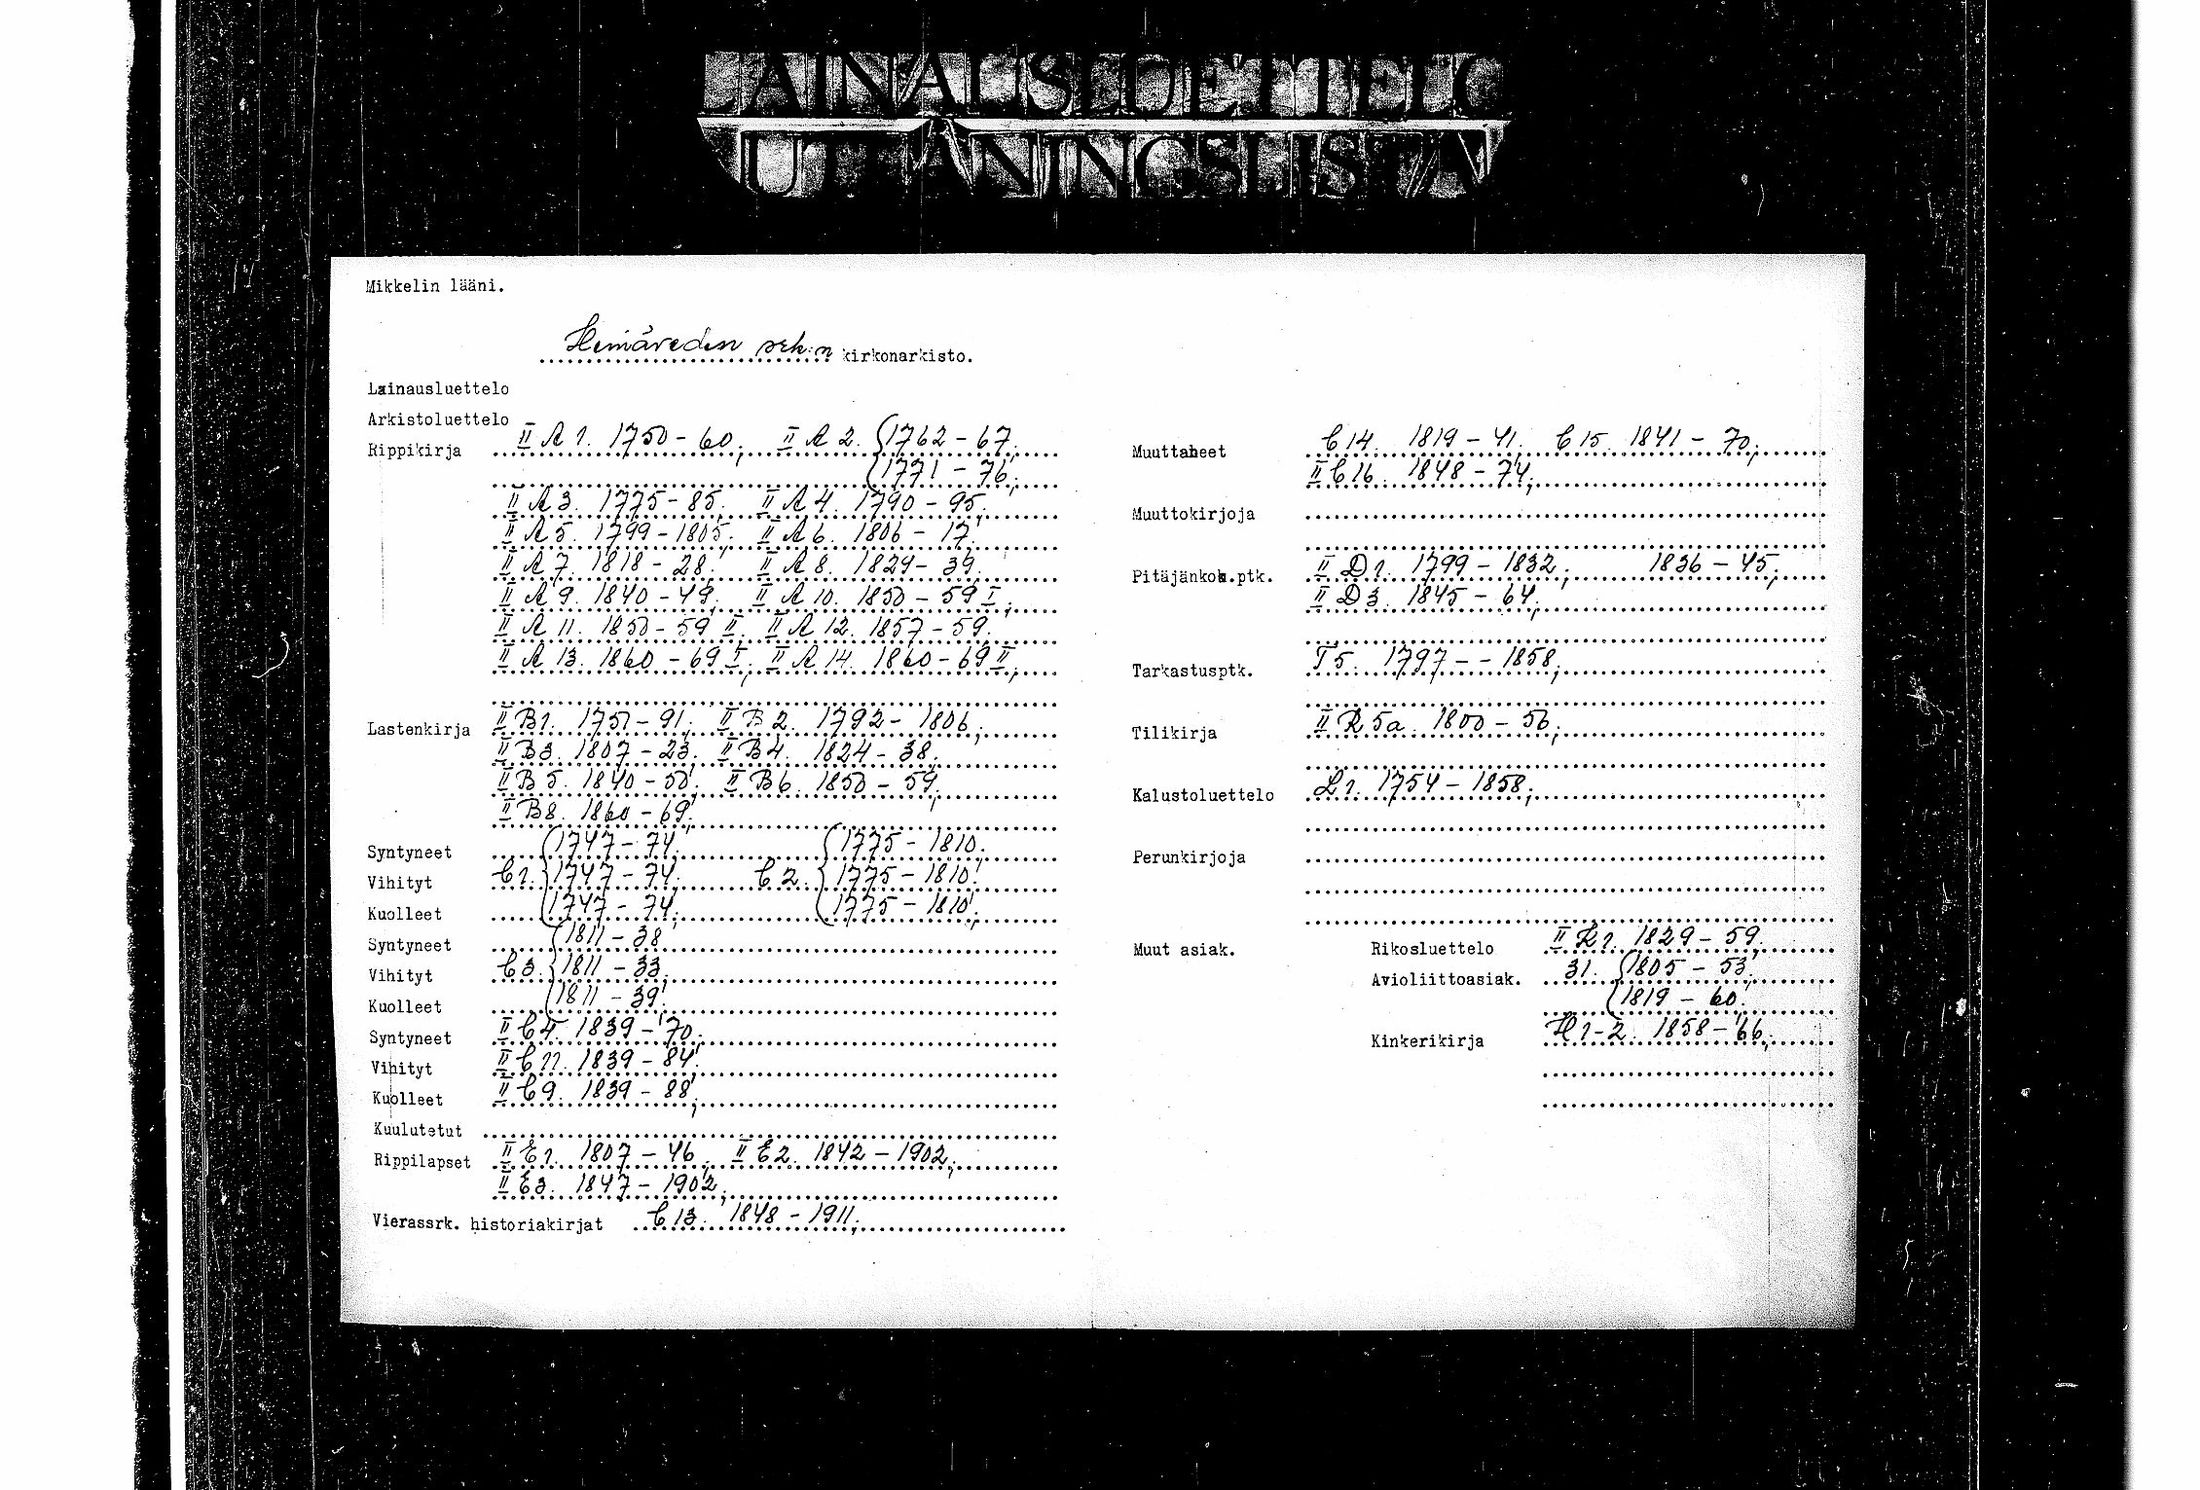 LAINAUSLUETTELO
UTLÅNINGSLISTA
Mikkelin lääni.
Heinäveden srk:n kirkonarkisto.
Lainausluettelo
Arkistoluettelo
Rippikirja II A 1. 1750-60; II A 2. 1762-67;
1771-76;
II A 3. 1775-85; II A 4. 1790-95;
II A 5. 1799-1805; II A 6. 1806-17;
II A 7. 1818-28; II A 8. 1829-39;
II A 9. 1840-49; II A 10. 1850-59 I;
II A 11. 1850-59 II; II A 12. 1857-59;
II A 13. 1860-69 I; II A 14. 1860-69 II;
Lastenkirja II B 1. 1751-91; II B 2. 1792-1806;
II B 3. 1807-23; II B 4. 1824-38;
II B 5. 1840-50; II B 6. 1850-59;
II B 8. 1860-69;
Syntyneet 1747-74; 1775-1810;
Vihityt C 1. 1747-74; C 2. 1775-1810;
Kuolleet 1747-74; 1775-1810;
Syntyneet 1811-38;
Vihityt C 3. 1811-33;
Kuolleet 1811-39;
Syntyneet II C 4. 1839-70;
Vihityt II C 11. 1839-84;
Kuolleet II C 9. 1839-88;
Kuulutetut
Rippilapset II E 1. 1807-46; II E 2. 1842-1902;
II E 3. 1847-1902;
Vierassrk. historiakirjat C 13. 1848-1911;
Muuttaneet C 14. 1819-41; C 15. 1841-70;
II C 16. 1848-74;
Muuttokirjoja
Pitäjänkok.ptk. II D 1. 1799-1832; 1836-45;
II D 3. 1845-64;
Tarkastusptk. T 5. 1797--1858;
Tilikirja II R 5a. 1800-56;
Kalustoluettelo L 1. 1754-1858;
Perunkirjoja
Muut asiak. Rikosluettelo II R 1. 1829-59;
Avioliittoasiak. 31. 1805-53;
1819-60;
Kinkerikirja H 1-2. 1858-66;